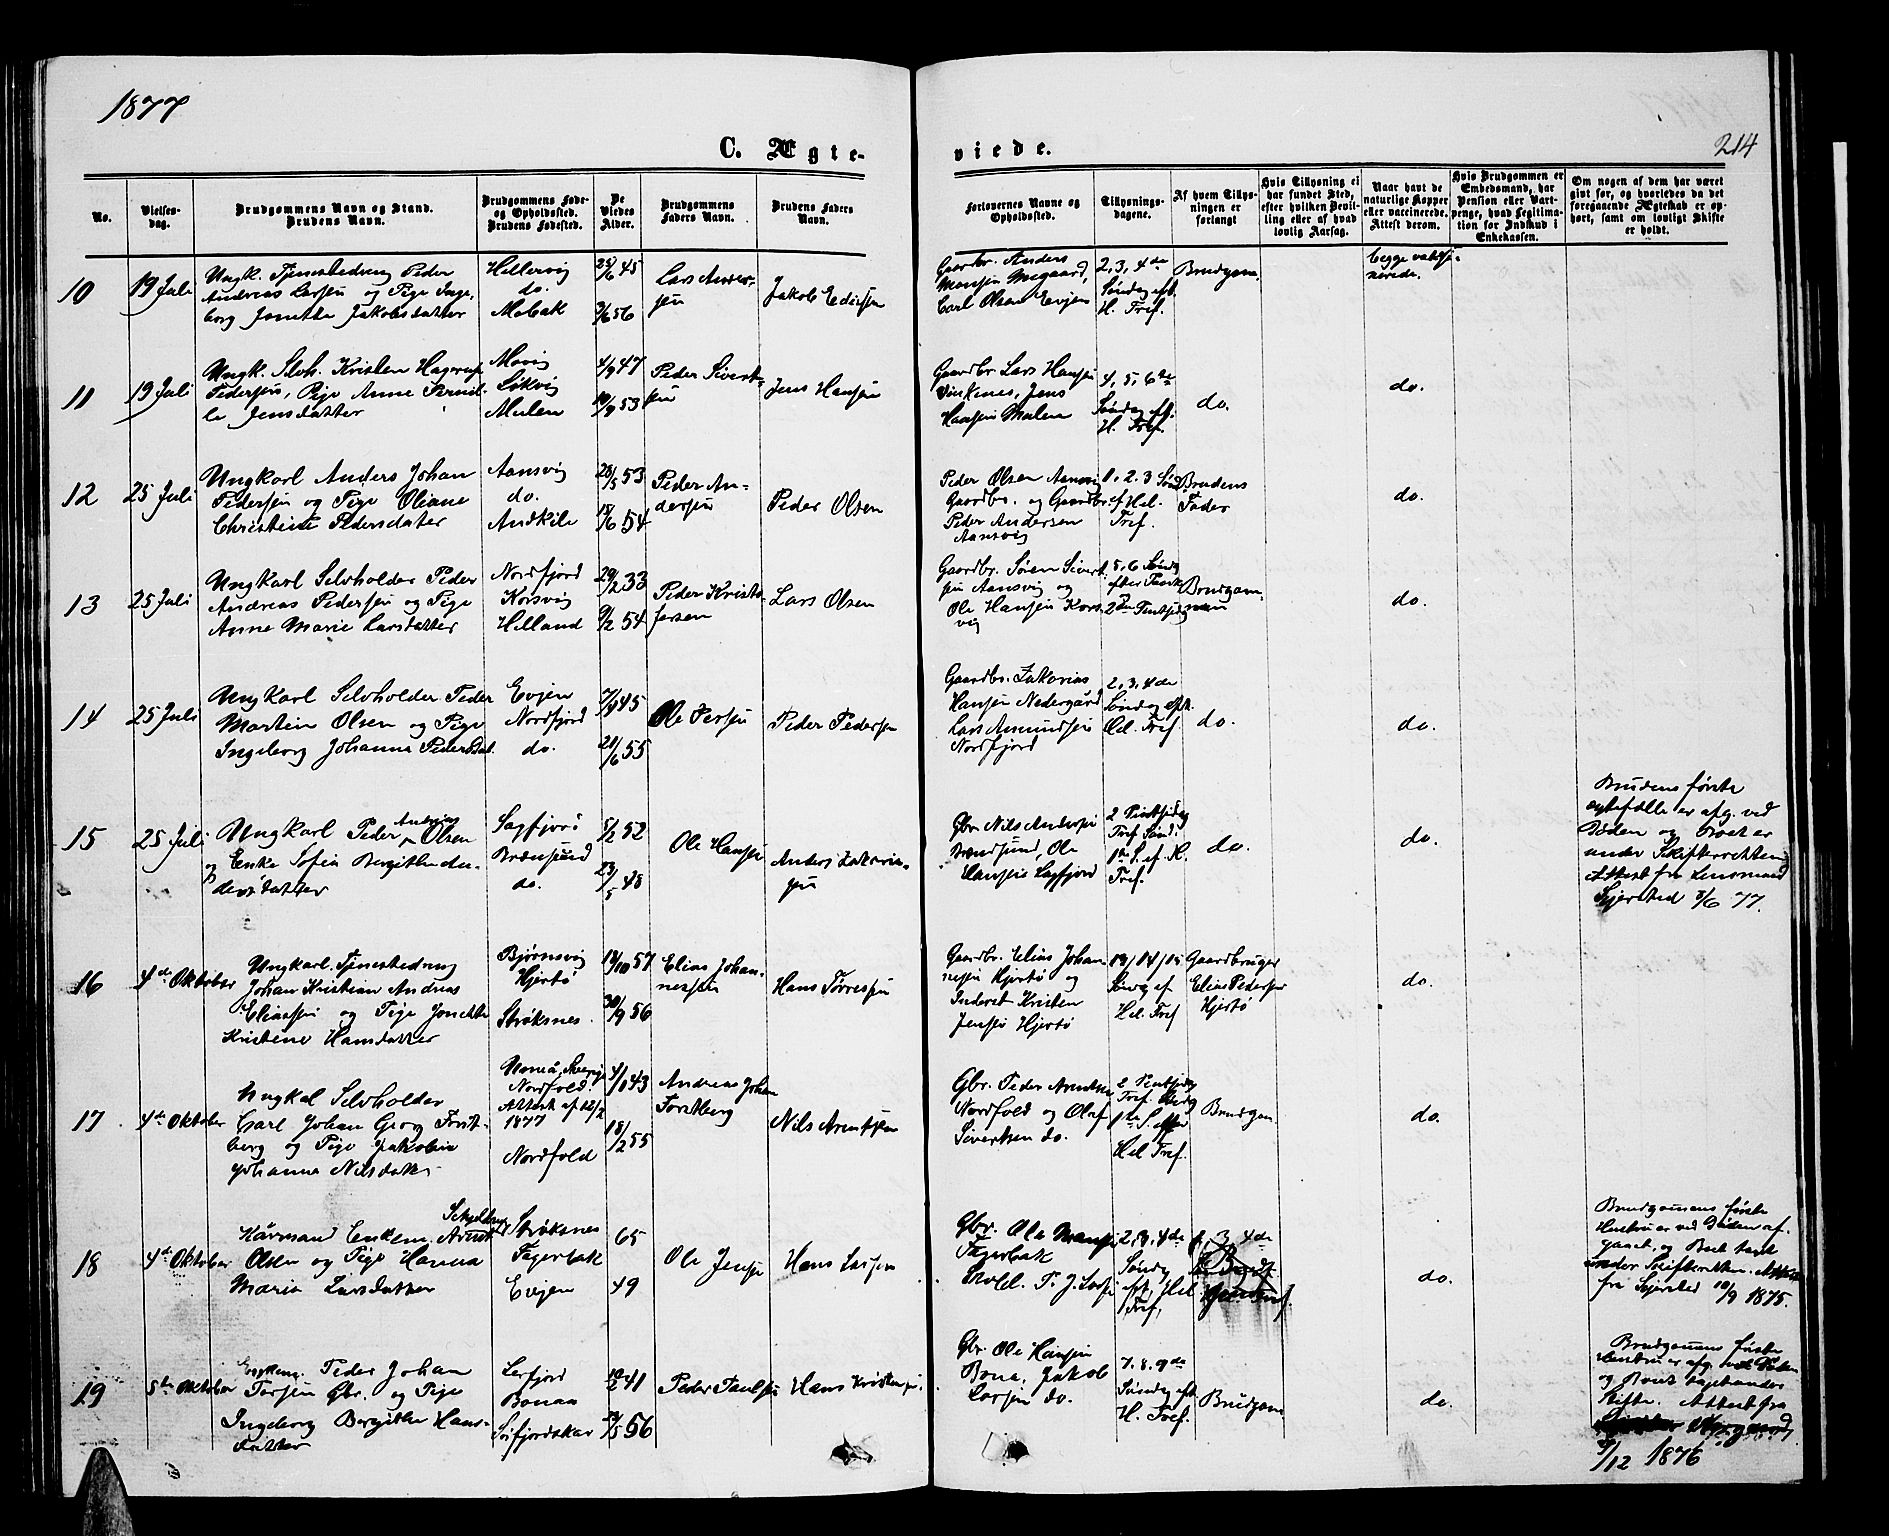 1877
C. Ægte-
viede.
214
No.
Vielses-
dag.
Brudgommens Navn og Stand.
Brudens Navn.
Brudgommens Føde-
og Opholdssted.
Brudens Fødested.
De
Viedes
Alder.
Brudgommens
Faders Navn.
Brudens Faders
Navn.
Forlovernes Navne og
Opholdssted.
Tillysnings-
dagene.
Af hvem Tillys-
ningen er
forlangt
Hvis Tillysning ei
har fundet Sted,
efter hvilken Bevil-
ling eller af hvad
lovlig Aarsag.
Naar havt de
naturlige Kopper
eller vaccinerede.
Attest derom.
Hvis Brudgommen er
Embedsmand, har
Pension eller Vart-
penge, hvad Legitima-
tion for Indskud i
Enkekassen.
Om nogen af dem har været
givt før, og hvorledes da det
foregaaende Ægteskab er op-
hørt, samt om lovligt Skifte
er holdt.
10
19 Juli
Ungk. Tjenestedreng Peder
Andreas Larsen og Pige Inge-
borg Jonette Jakobsdatter
Hellervig
do.
Mobak
25/6 45
3/6 56
Lars Ander-
sen
Jakob Edissen
Gaardbr. Anders
Monsen Megaard,
Carl Olsen Evjen
2, 3, 4de
Søndag eft.
H. Tref.
Brudgom.
begge vakci-
nerede.
11
19 Juli
Ungk. Selvh. Kristen Hagerup
Pedersen, Pige Anne Pernil-
le Jensdatter
Movig
Løkvig
Mulen
4/9 47
10/9 53
Peder Sivert-
sen
Jens Hansen
Gaardbr Lars Hansen
Vinkenes, Jens
Hansen Mulen
4, 5, 6te
Søndag eft.
H. Tref.
do.
do.
12
25 Juli
Ungkarl Anders Johan
Pedersen og Pige Oliane
Christine Pedersdatter
Aansvig
do.
Andkile
28/5 53
18/6 54
Peder An-
dersen
Peder Olsen
Peder Olsen Aansvig
Gaardbr. og Gaardbr.
Peder Andersen
Aansvig
1, 2. 3 Sønd.
ef Hel.
Tref.
Brudens
Fader
do.
13
25 Juli
Ungkarl Selvholder Peder
Andreas Pedersen og Pige
Anne Marie Larsdatter
Nordfjord
Korsvig
Helland
29/2 33
9/2 54
Peder Kristo-
fersen
Lars Olsen
Gaardbr. Søren Sivert-
sen Aansvig og
Ole Hansen Kors-
vig
5, 6 Søndag
efter Paask
2den Pintsedag
Brudgom-
men
do.
14
25 Juli
Ungkarl Selvholder Peder
Martin Olsen og Pige
Ingeborg Johanne Pedersdat.
Evjen
Nordfjord
do.
7/9 45
21/6 55
Ole Persen
Peder Pedersen
Gaardbr. Zakarias
Hansen Nedergård
Lars Amundsen
Nordfjord
2, 3, 4de
Søndag eft.
Hel. Tref.
do.
do.
15
25 Juli
Ungkarl Peder Andreas Olsen
og Enke Sofia Bergithe An-
dersdatter
Sagfjord
Brænsund
do.
5/2 52
23/5 48
Ole Hansen
Anders Zakarias-
sen
Gbr Nils Andersen
Brænsund, Ole
Hansen Sagfjord
2 Pintsedag
Tref. Sønd.
1ste S. ef. H.
Tref.
do.
do.
Brudens første
egtefælle er afg. ved
Døden og Boet er
under Skifteretten
Attest fra Lensmand
Sejersted 8/6 77.
16
4de Oktober
Ungkarl Tjenestedreng
Johan Kristian Andreas
Eliassen og Pige Jonette
Kristene Hansdatter
Bjørnsvig
Hjertø
Strøksnes
13/10 57
30/9 56
Elias Johan-
nessen
Hans Torressen
Gaardbr. Elias Johan-
nessen Hjertø og
Inderst Kristen
Jensen Hjertø
13/14/15
Søndag ef
Hel. Tref
Gaardbruger
Elias Pedersen
Hjertø
do.
17
4de Oktober
Ungkal Selvholder
Carl Johan Georg Forst-
berg og Pige Jakobine
Johanne Nilsdatter
Umeå, Sverige
Nordfold.
Attest af 12/2
1877
Nordfold
4/1 43
18/2 55
Andreas Johan
Forstberg
Nils Arentsen
Gbr. Peder Arentsen
Nordfold og Olaf
Sivertsen do.
2 Pintsedag
Tref. Søndg
1ste S. efter
Hel Tref.
Brudgom
do.
18
4de Oktober
Kårmand Enkem. Arent Schjelderup
Olsen og Pige Hanna
Maria Larsdatter
Strøksnes
Fagerbak
Evjen
65
49
Ole Jensen
Hans Larsen
Gbr. Ole Monsen
Fagerbak
Selvh. P. J. Larsen
2, 3, 4de
Søndg
eft. Hel.
Tref.
2, 3, 4de
do.
Brudgommens første
Hustru er ved Døden af-
gaaet, og Boet tant
under Skifteretten. Attest
fra Sejersted 10/9 1875.
19
5te Oktober
Enkem. Peder Johan
Persen Gbr. og Pige
Ingeborg Bergitte Hans-
datter
Lerfjord
Bonaa
Seifjordskar
12/2 41
24/5 56
Peder Paulsen
Hans Kristensen.
Gbr. Ole Hansen
Bona, Jakob
Larsen do.
7. 8. 9de
Søndag eft.
H. Tref.
Brudgom
do.
Brudgommens første
Hustru er afg. ved Døden
og Boet
Skifte. Attest fra
9/12 1876